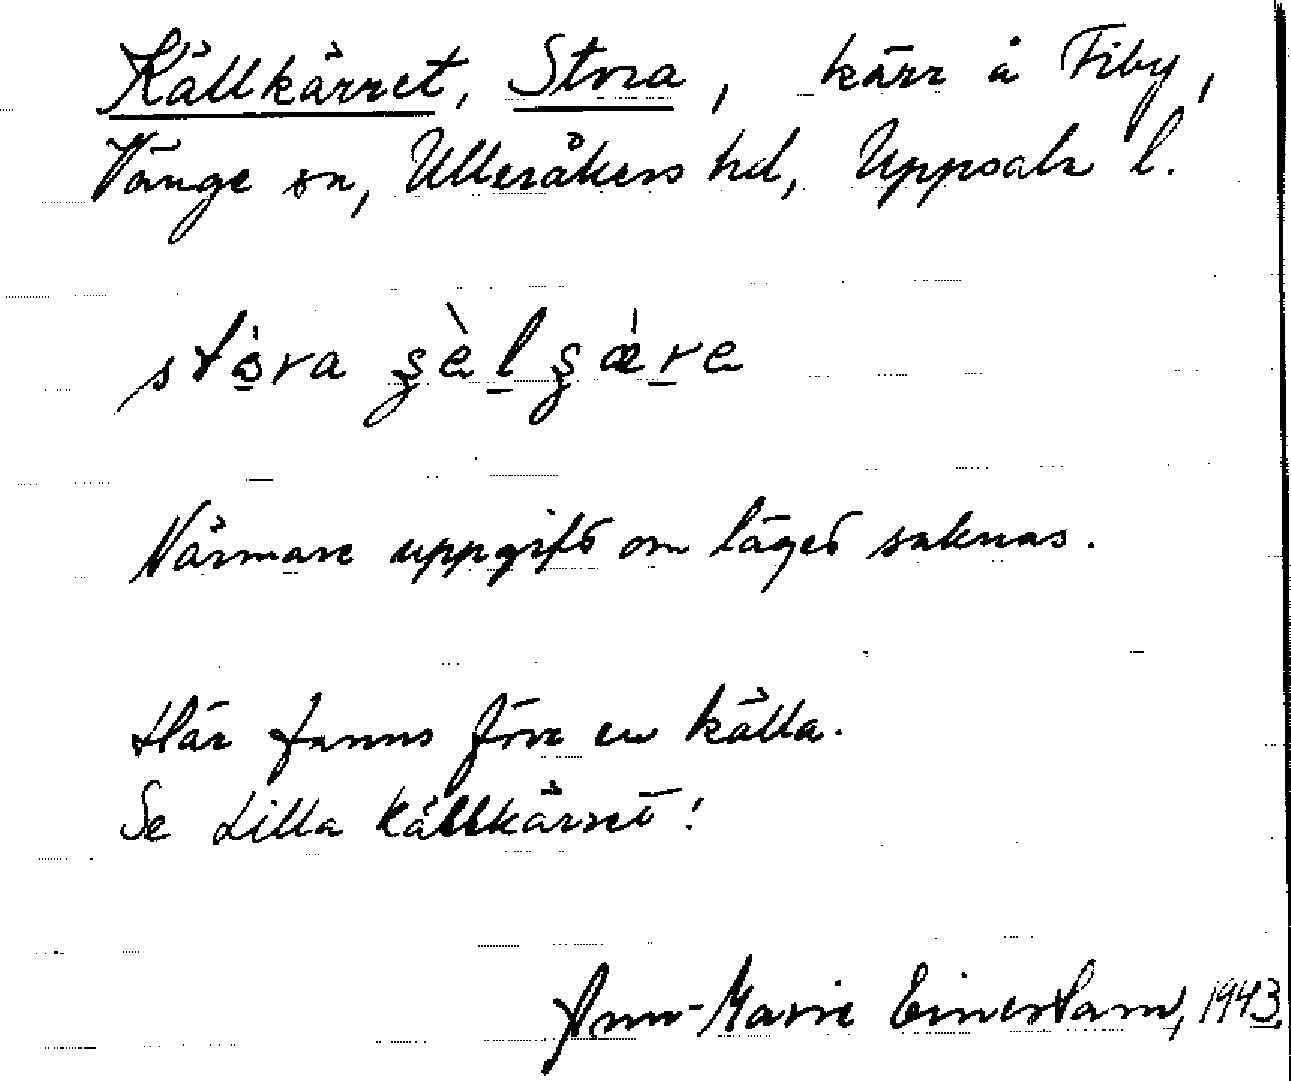 Källkärret, Stora, kärr å Fiby,
Vänge sn, Ulleråkers hd, Uppsala l.
stóra şèlşǽre
Närmare uppgift om läget saknas.
Här fanns förr en källa.
Se Lilla Källkärret!
Ann-Marie Einerstam, 1943.